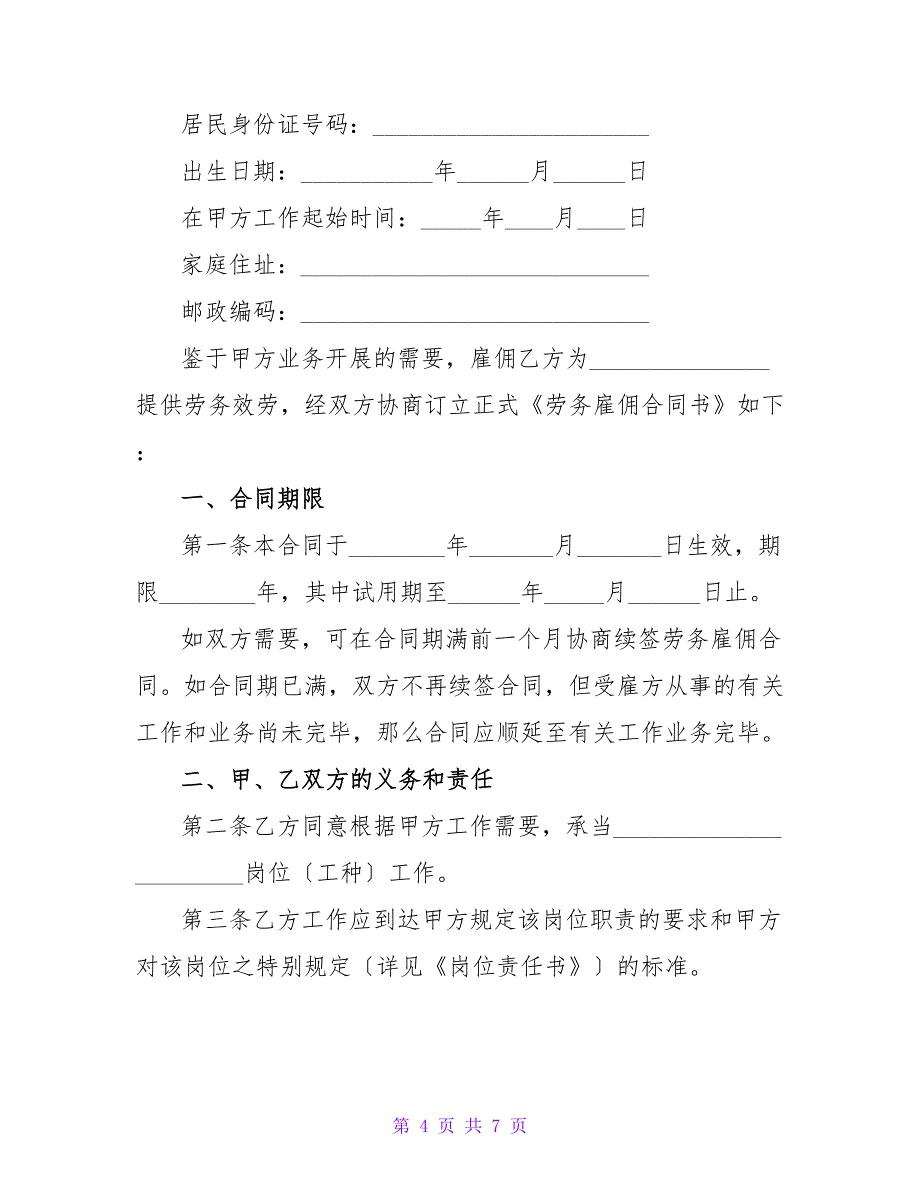 居民身份证号码：_______________________
出生日期：___________年______月______日
在甲方工作起始时间：_____年____月____日
家庭住址：_____________________________
邮政编码：_____________________________
鉴于甲方业务开展的需要，雇佣乙方为_______________
提供劳务效劳，经双方协商订立正式《劳务雇佣合同书》如下
：
一、合同期限
第一条本合同于________年_______月_______日生效，期
限________年，其中试用期至______年_____月______日止。
如双方需要，可在合同期满前一个月协商续签劳务雇佣合
同。如合同期已满，双方不再续签合同，但受雇方从事的有关
工作和业务尚未完毕，那么合同应顺延至有关工作业务完毕。
二、甲、乙双方的义务和责任
第二条乙方同意根据甲方工作需要，承当______________
_________岗位〔工种〕工作。
第三条乙方工作应到达甲方规定该岗位职责的要求和甲方
对该岗位之特别规定〔详见《岗位责任书》〕的标准。
第 4 页 共 7 页